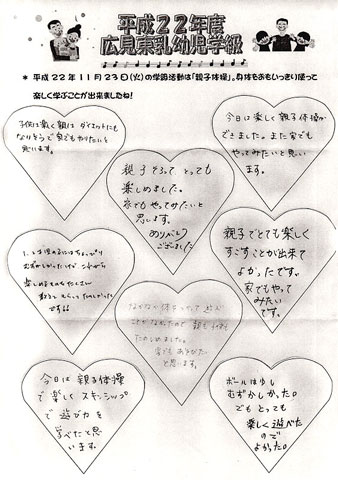 平成22年度
広見東乳幼児学級
* 平成22年11月23日(火)の学習活動は「親子体操」。身体をおもいっきり使って
楽しく学ぶことが出来ましたね!
子供は楽しく親は ダイエットにも
なりそうで家でもやりたいと
思います。
今日は楽しく親子体操が
できました。また家でも
やってみたいと思い
ます。
親子そろって とっても
楽しめました。
家でもやってみたいと
思います。
ありがとう
ございました
親子でとても楽しく
すごすことが出来て
よかったです。
家でもやって
みたい
です。
1才の子にはちょっぴり
むずかしかったけど
たのしかった
です
なかなか体をつかって遊ぶ
ことがなかったので 親も
たのしめました。
家でも あそびたい
と思います。
今日は 親子体操
で楽しく スキンシップ
で 遊び方を
学べたと思
います。
ボールは少し
むずかしかった。
でも とっても
楽しく遊べた
ので
よかった。